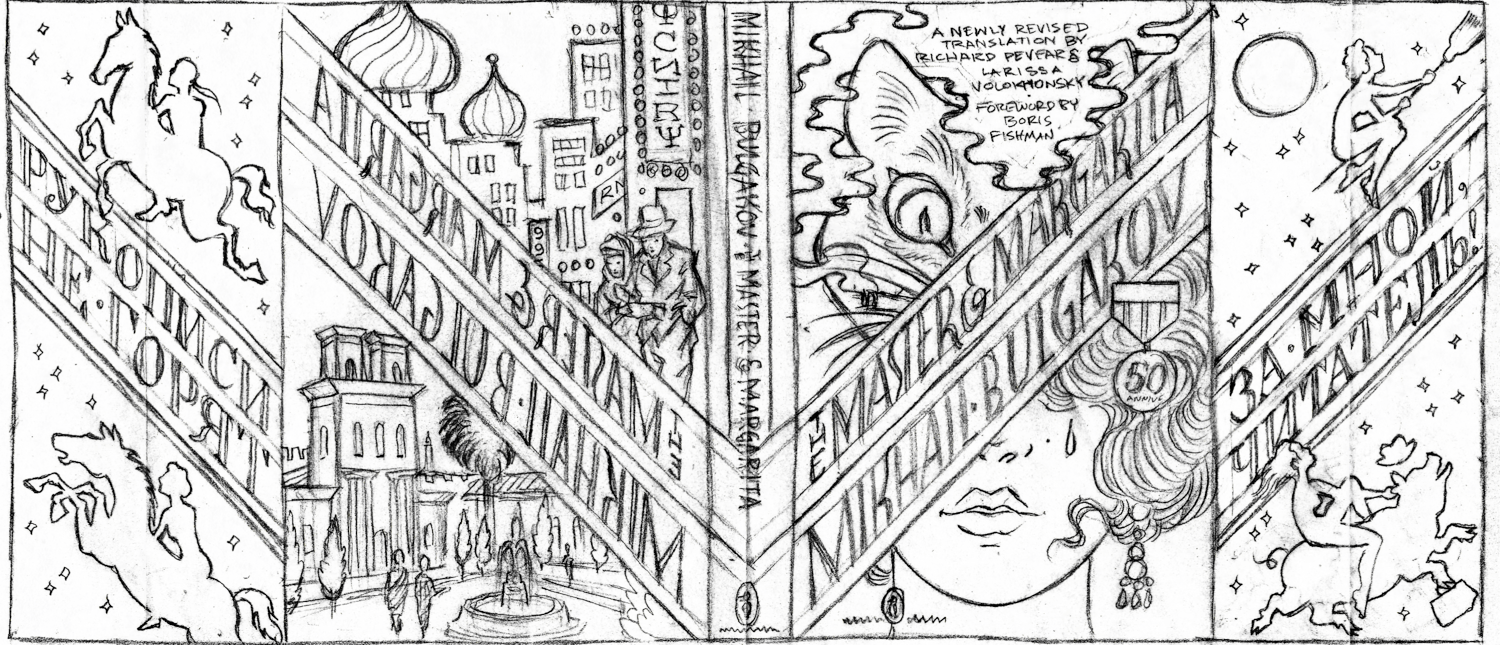 РУКОПИСИ
НЕ·ГОРЯТ!
THE MASTER & MARGARITA
MIKHAIL·BULGAKOV
MIKHAIL BULGAKOV · THE MASTER & MARGARITA
A NEWLY REVISED
TRANSLATION BY
RICHARD PEVEAR &
LARISSA
VOLOKHONSKY
FOREWORD BY
BORIS
FISHMAN
THE MASTER & MARGARITA
MIKHAIL·BULGAKOV
50
ANNIV.
ЗА МНОЙ,
ЧИТАТЕЛЬ!